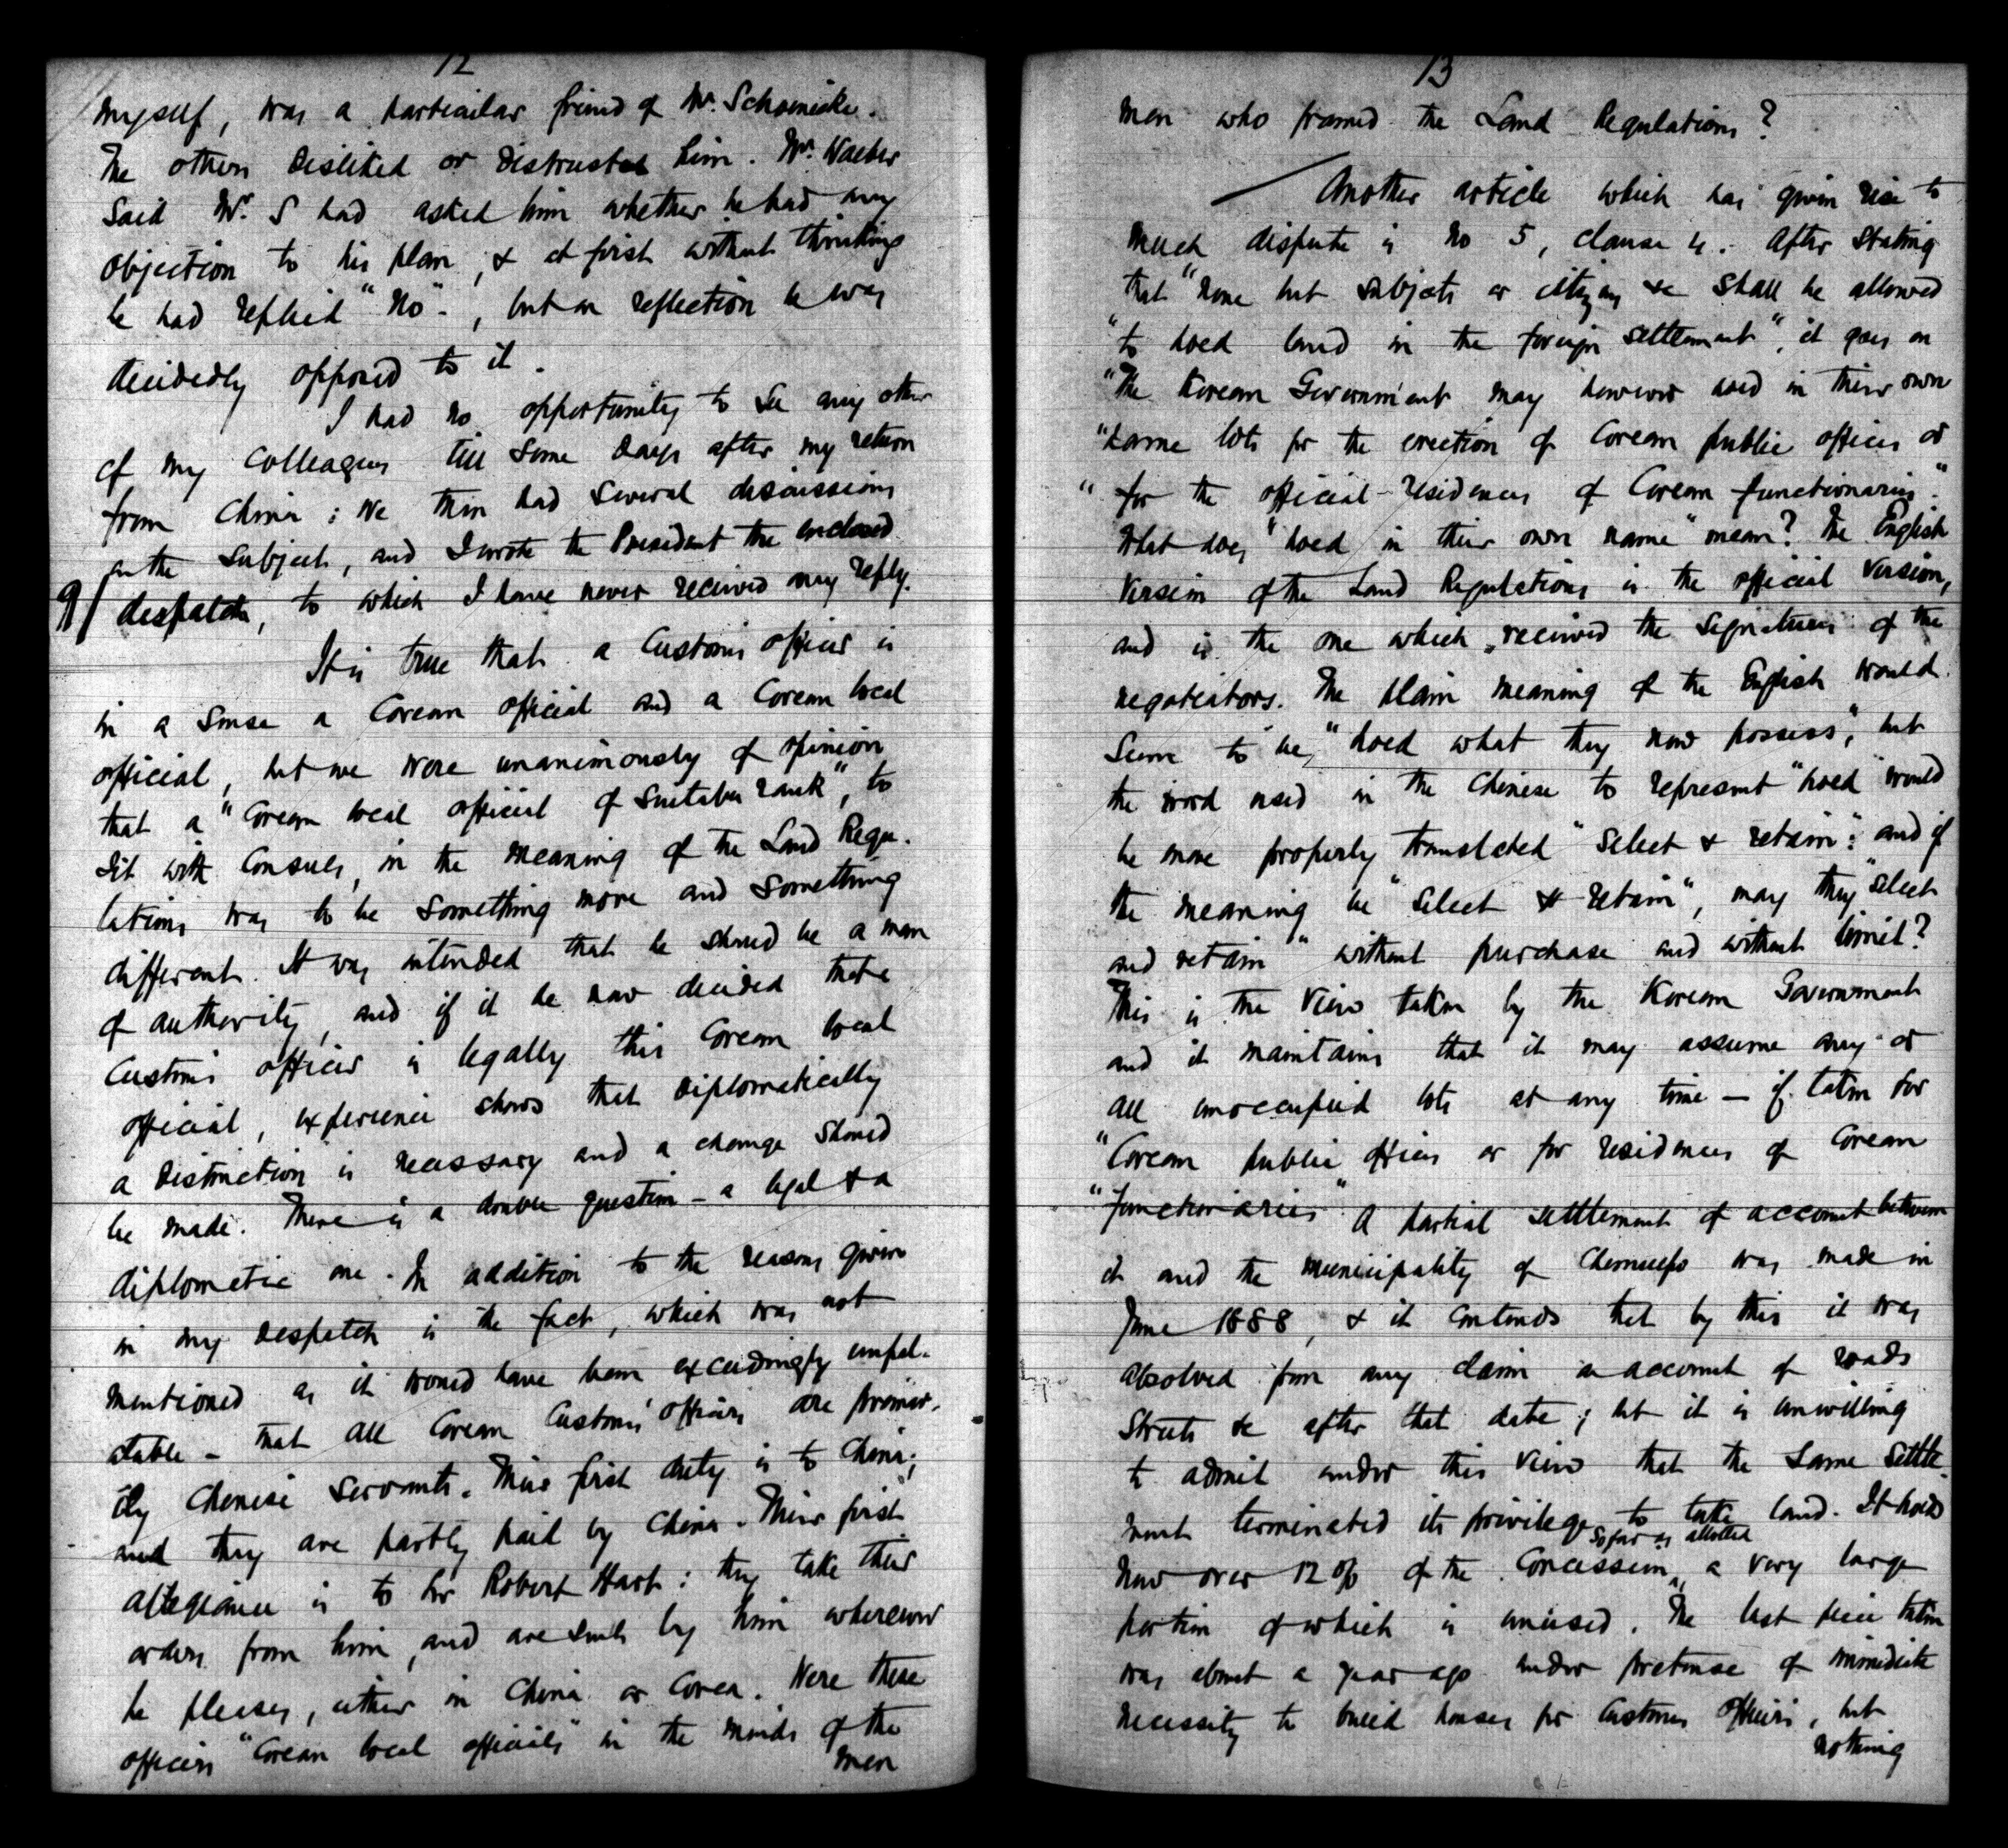 12
myself, was a particular friend of Mr. Schoenicke.
The others disliked or distrusted him. Mr. Waeber
said Mr. S had asked him whether he had any
objection to his plan, & at first without thinking
he had replied "No", but on reflection he was
decidedly opposed to it.
I had no opportunity to see any other
of my Colleagues till some days after my return
from China: We then had several discussions
on the subject, and I wrote the President the enclosed
9/ despatch, to which I have never received any reply.
It is true that a Customs officer is
in a sense a Corean official and a Corean local
official, but we were unanimously of opinion
that a "Corean local official of suitable rank", to
sit with Consuls, in the meaning of the Land Regu-
lations was to be something more and something
different. It was intended that he should be a man
of authority, and if it be now decided that a
Customs officer is legally this Corean local
official, experience shows that diplomatically
a distinction is necessary and a change should
be made. There is a double question - a legal & a
diplomatic one. In addition to the reasons given
in my despatch is the fact, which was not
mentioned as it would have been exceedingly unpal-
atable - that all Corean Customs' officers are primar-
ily Chinese servants. Their first duty is to China;
and they are partly paid by China. Their first
allegiance is to Sir Robert Hart: they take their
orders from him, and are sent by him wherever
he pleases, either in China or Corea. Were these
officers "Corean local officials" in the minds of the
men
13
men who framed the Land Regulations?
Another article which has given rise to
much dispute is No 5, clause 4. After stating
that "none but subjects or citizens &c shall be allowed
"to hold land in the foreign settlement", it goes on
"The Korean Government may however hold in their own
"name lots for the erection of Corean public offices or
"for the official-residences of Corean functionaries."
What does "hold in their own name" mean? The English
version of the Land Regulations is the official version,
and is the one which received the signatures of the
negotiators. The plain meaning of the English would
seem to be, "hold what they now possess", but
the word used in the Chinese to represent "hold" would
be more properly translated "select & retain": and if
the meaning be "select & retain", may they "select
and retain" without purchase and without limit?
This is the view taken by the Korean Government
and it maintains that it may assume any or
all unoccupied lots at any time — if taken for
"Corean public offices or for residences of Corean
"functionaries". A partial settlement of account between
it and the municipality of Chemulpo was made in
June 1888, & it contends that by this it was
absolved from any claim on account of roads
streets &c after that date; but it is unwilling
to admit under this view that the same settle-
ment terminated its privilege to take land. It holds
so far as allotted
now over 12 % of the Concession, a very large
portion of which is unused. The last piece taken
was about a year ago under pretense of immediate
necessity to build houses for Customs officers, but
nothing